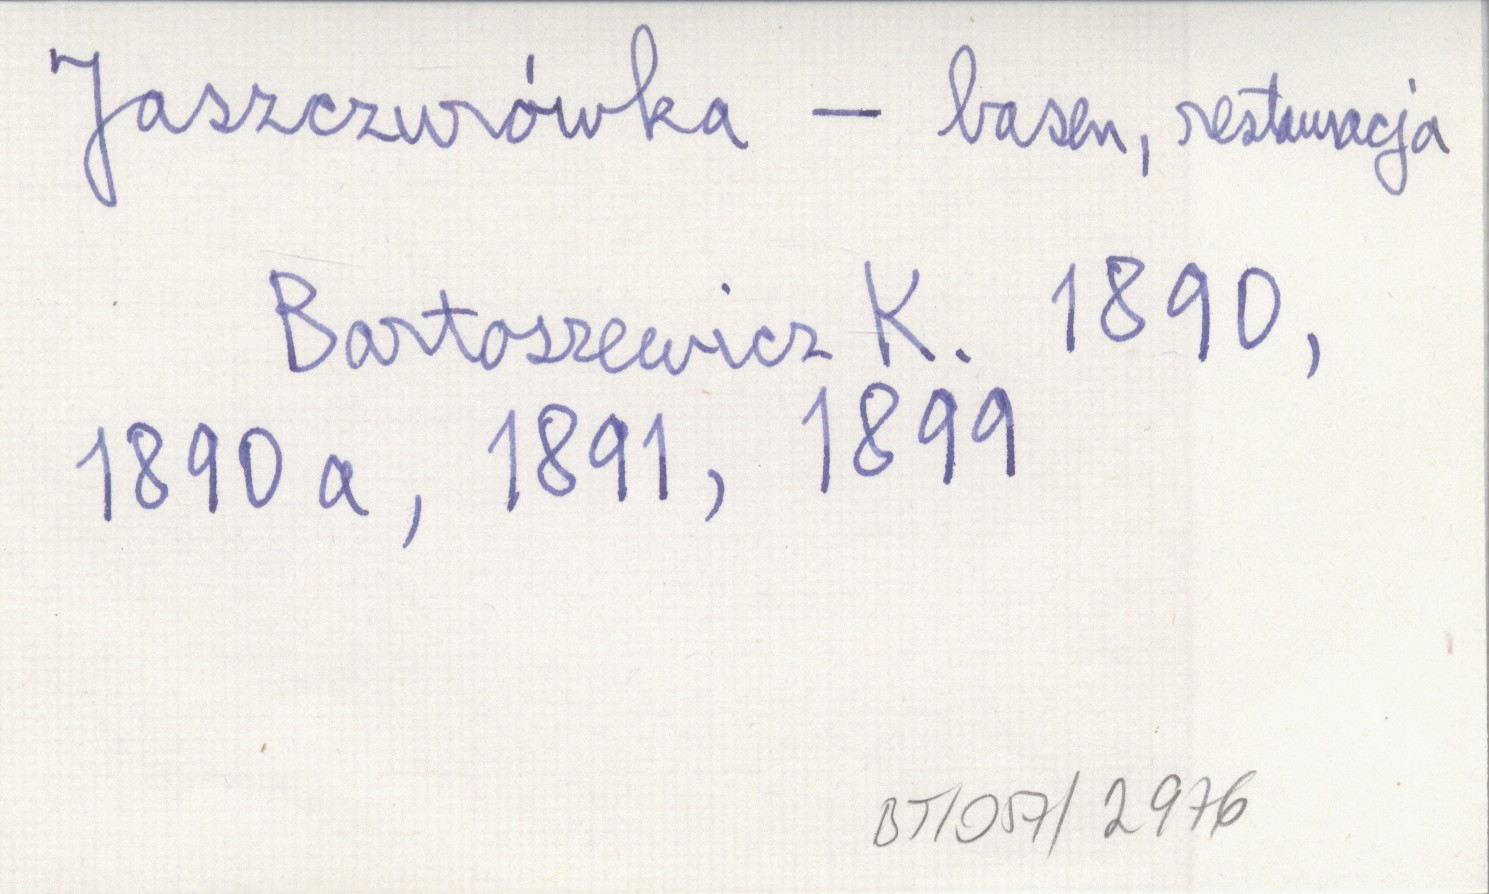 Jaszczurówka – basen, restauracja
Bartoszewicz K. 1890,
1890 a, 1891, 1899
BT/057/2976